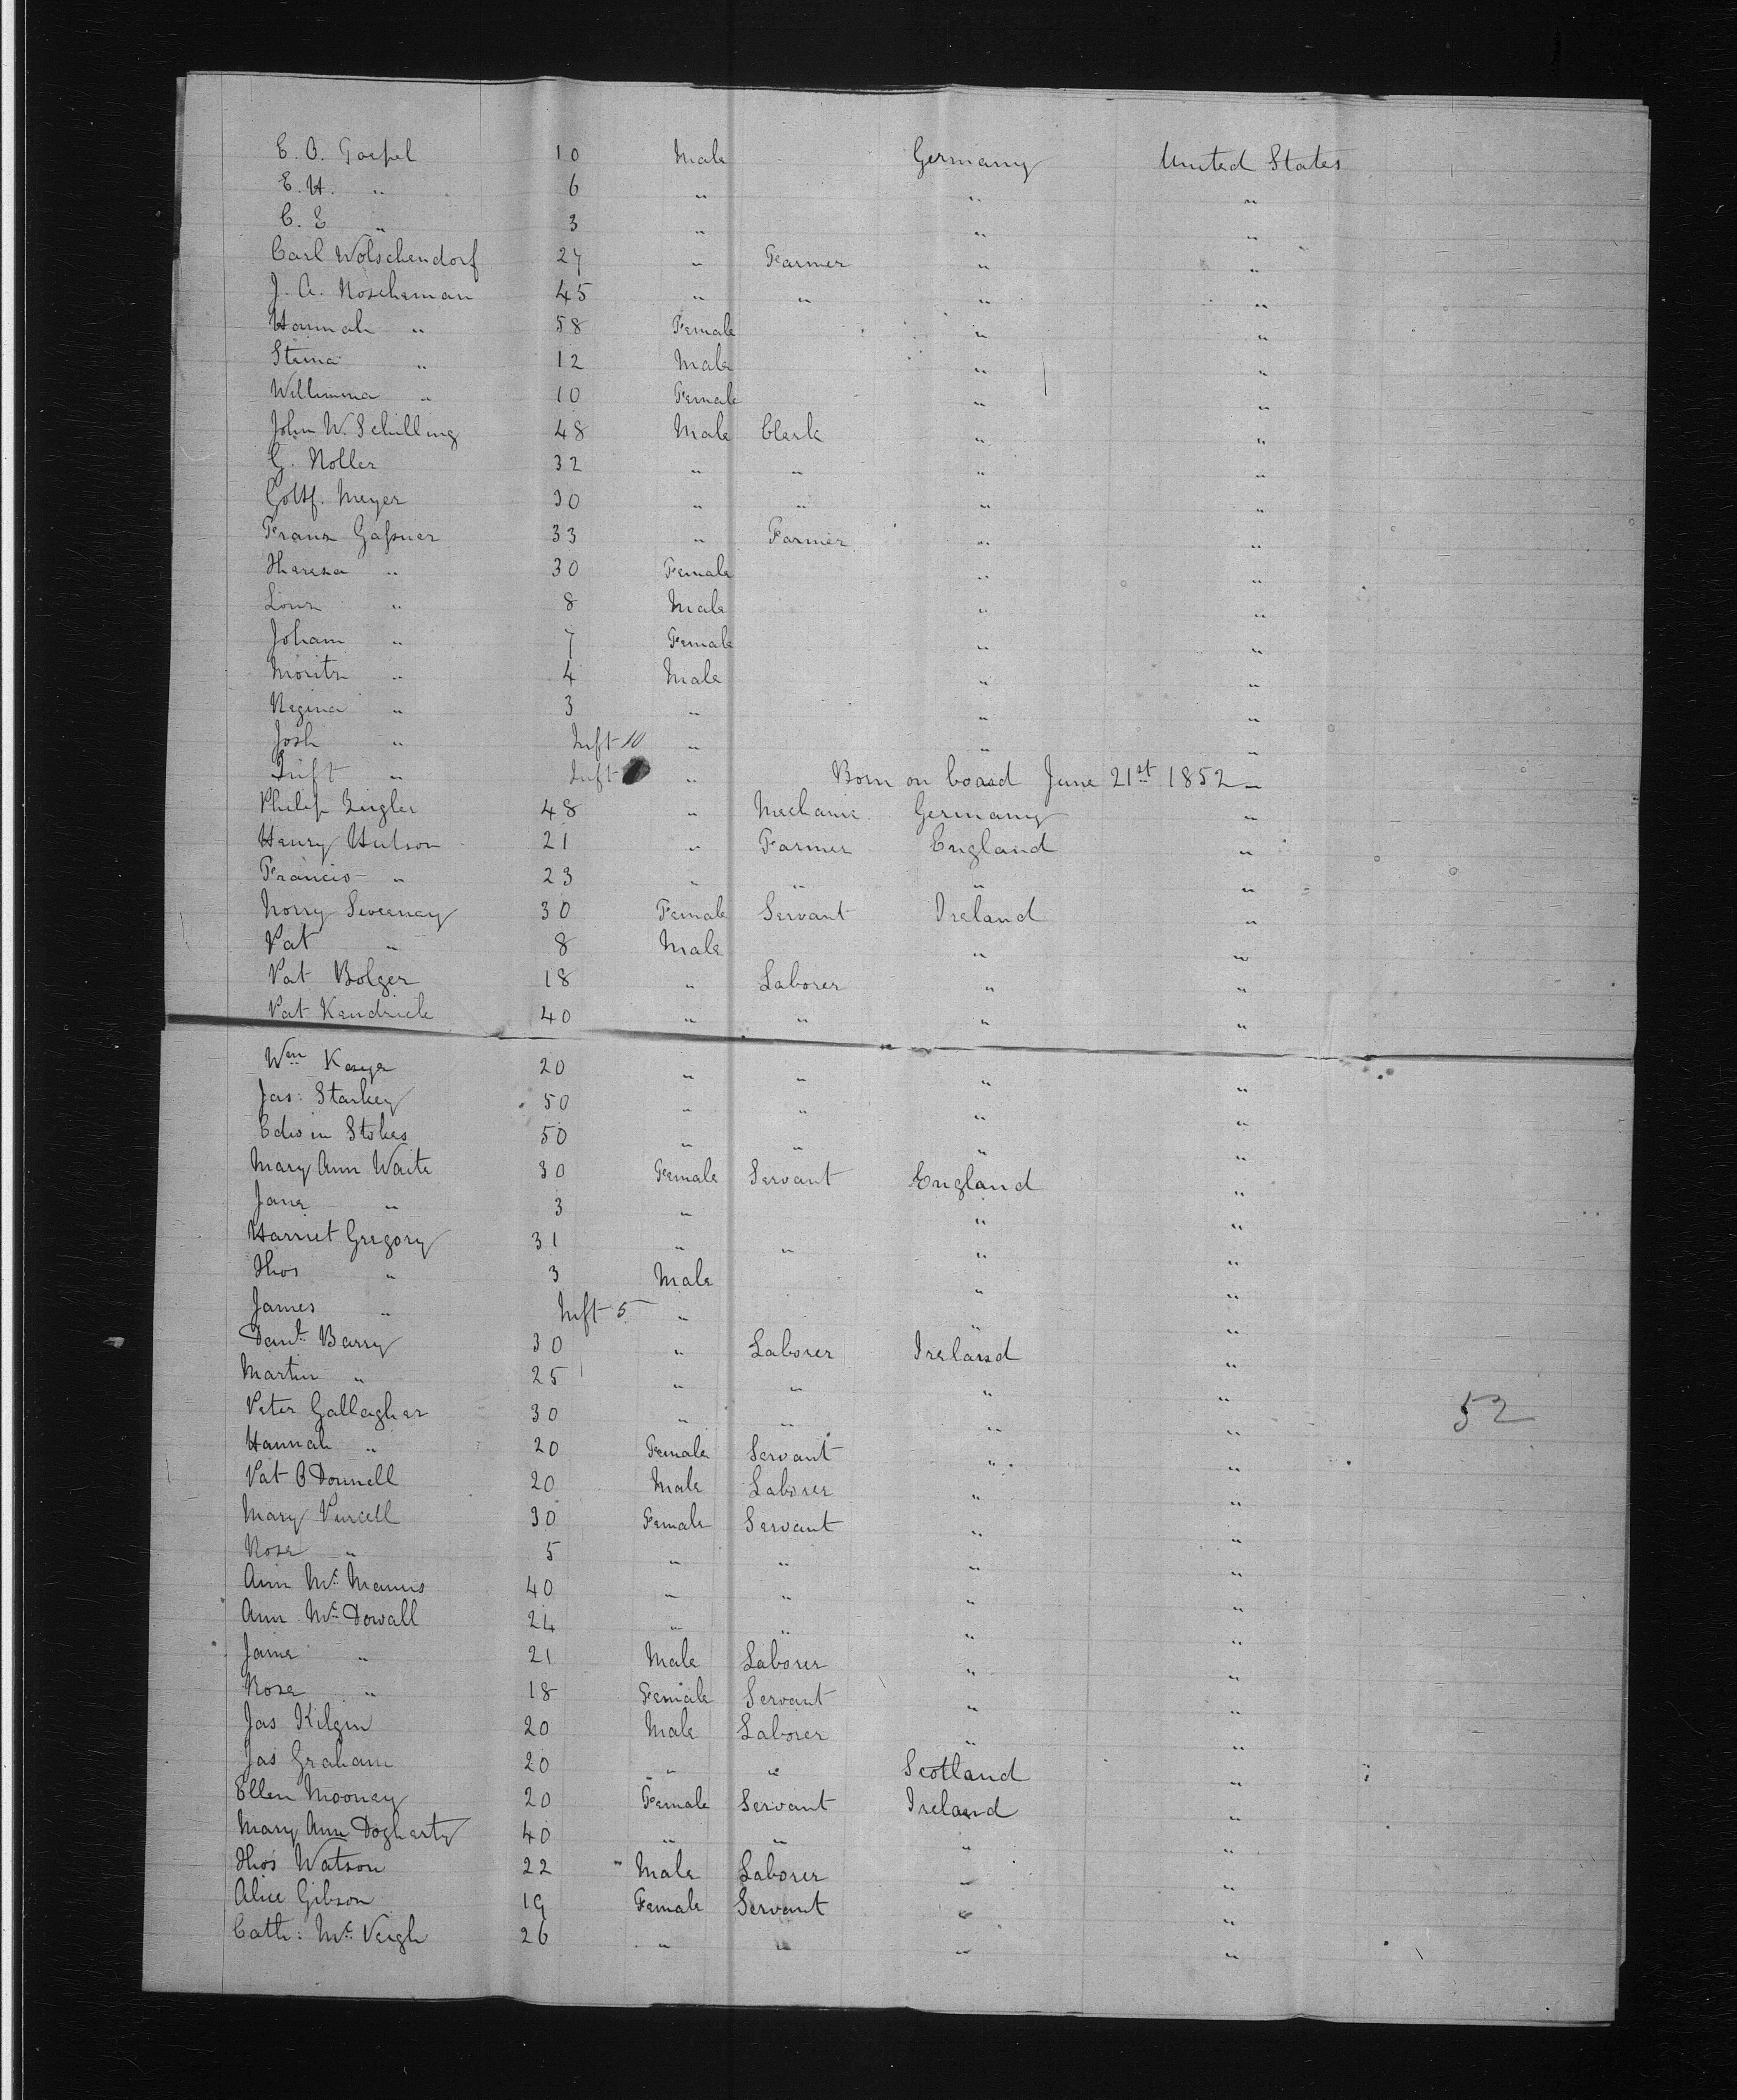 E. O. Goepel 10 Male Germany United States
E. H. " 6 " " "
C. E " 3 " " "
Carl Wolschendorf 27 " Farmer " "
J. A. Noscheman 45 " " " "
Hannah " 58 Female " "
Stina " 12 Male " "
Willimina " 10 Female " "
John W. Schilling 48 Male Clerk " "
G. Noller 32 " " " "
Gottf. Meyer 30 " " " "
Franz Gaßner 33 " Farmer " "
Theresa " 30 Female " "
Louis " 8 Male " "
Joham " 7 Female " "
Moritz " 4 Male " "
Regina " 3 " " "
Josh " Inft 10 " " "
Inft " Inft " Born on board June 21st 1852 "
Philip Zeigler 48 " Mechanic Germany "
Henry Hutson 21 " Farmer England "
Francis " 23 " " " "
Norry Sweeney 30 Female Servant Ireland "
Pat " 8 Male " "
Pat Bolger 18 " Laborer " "
Pat Kendrick 40 " " " "
Wm Kaye 20 " " " "
Jas: Starkey 50 " " " "
Edwin Stokes 50 " " " "
Mary Ann Waite 30 Female Servant England "
Jane " 3 " " "
Harriet Gregory 31 " " " "
Thos " 3 Male " "
James " Inft 5 " " "
Danl. Barry 30 " Laborer Ireland "
Martin " 25 " " " "
Peter Gallagher 30 " " " " 52
Hannah " 20 Female Servant " "
Pat O Donnell 20 Male Laborer " "
Mary Purcell 30 Female Servant " "
Rose " 5 " " " "
Ann Mc Manus 40 " " " "
Ann Mc Dowall 24 " " " "
Jame " 21 Male Laborer " "
Rose " 18 Female Servant " "
Jas Kilgin 20 Male Laborer " "
Jas Graham 20 " " Scotland "
Ellen Mooney 20 Female Servant Ireland "
Mary Ann Dogherty 40 " " " "
Thos Watson 22 " Male Laborer " "
Alice Gibson 19 Female Servant " "
Cath: Mc Veigh 26 " " " "